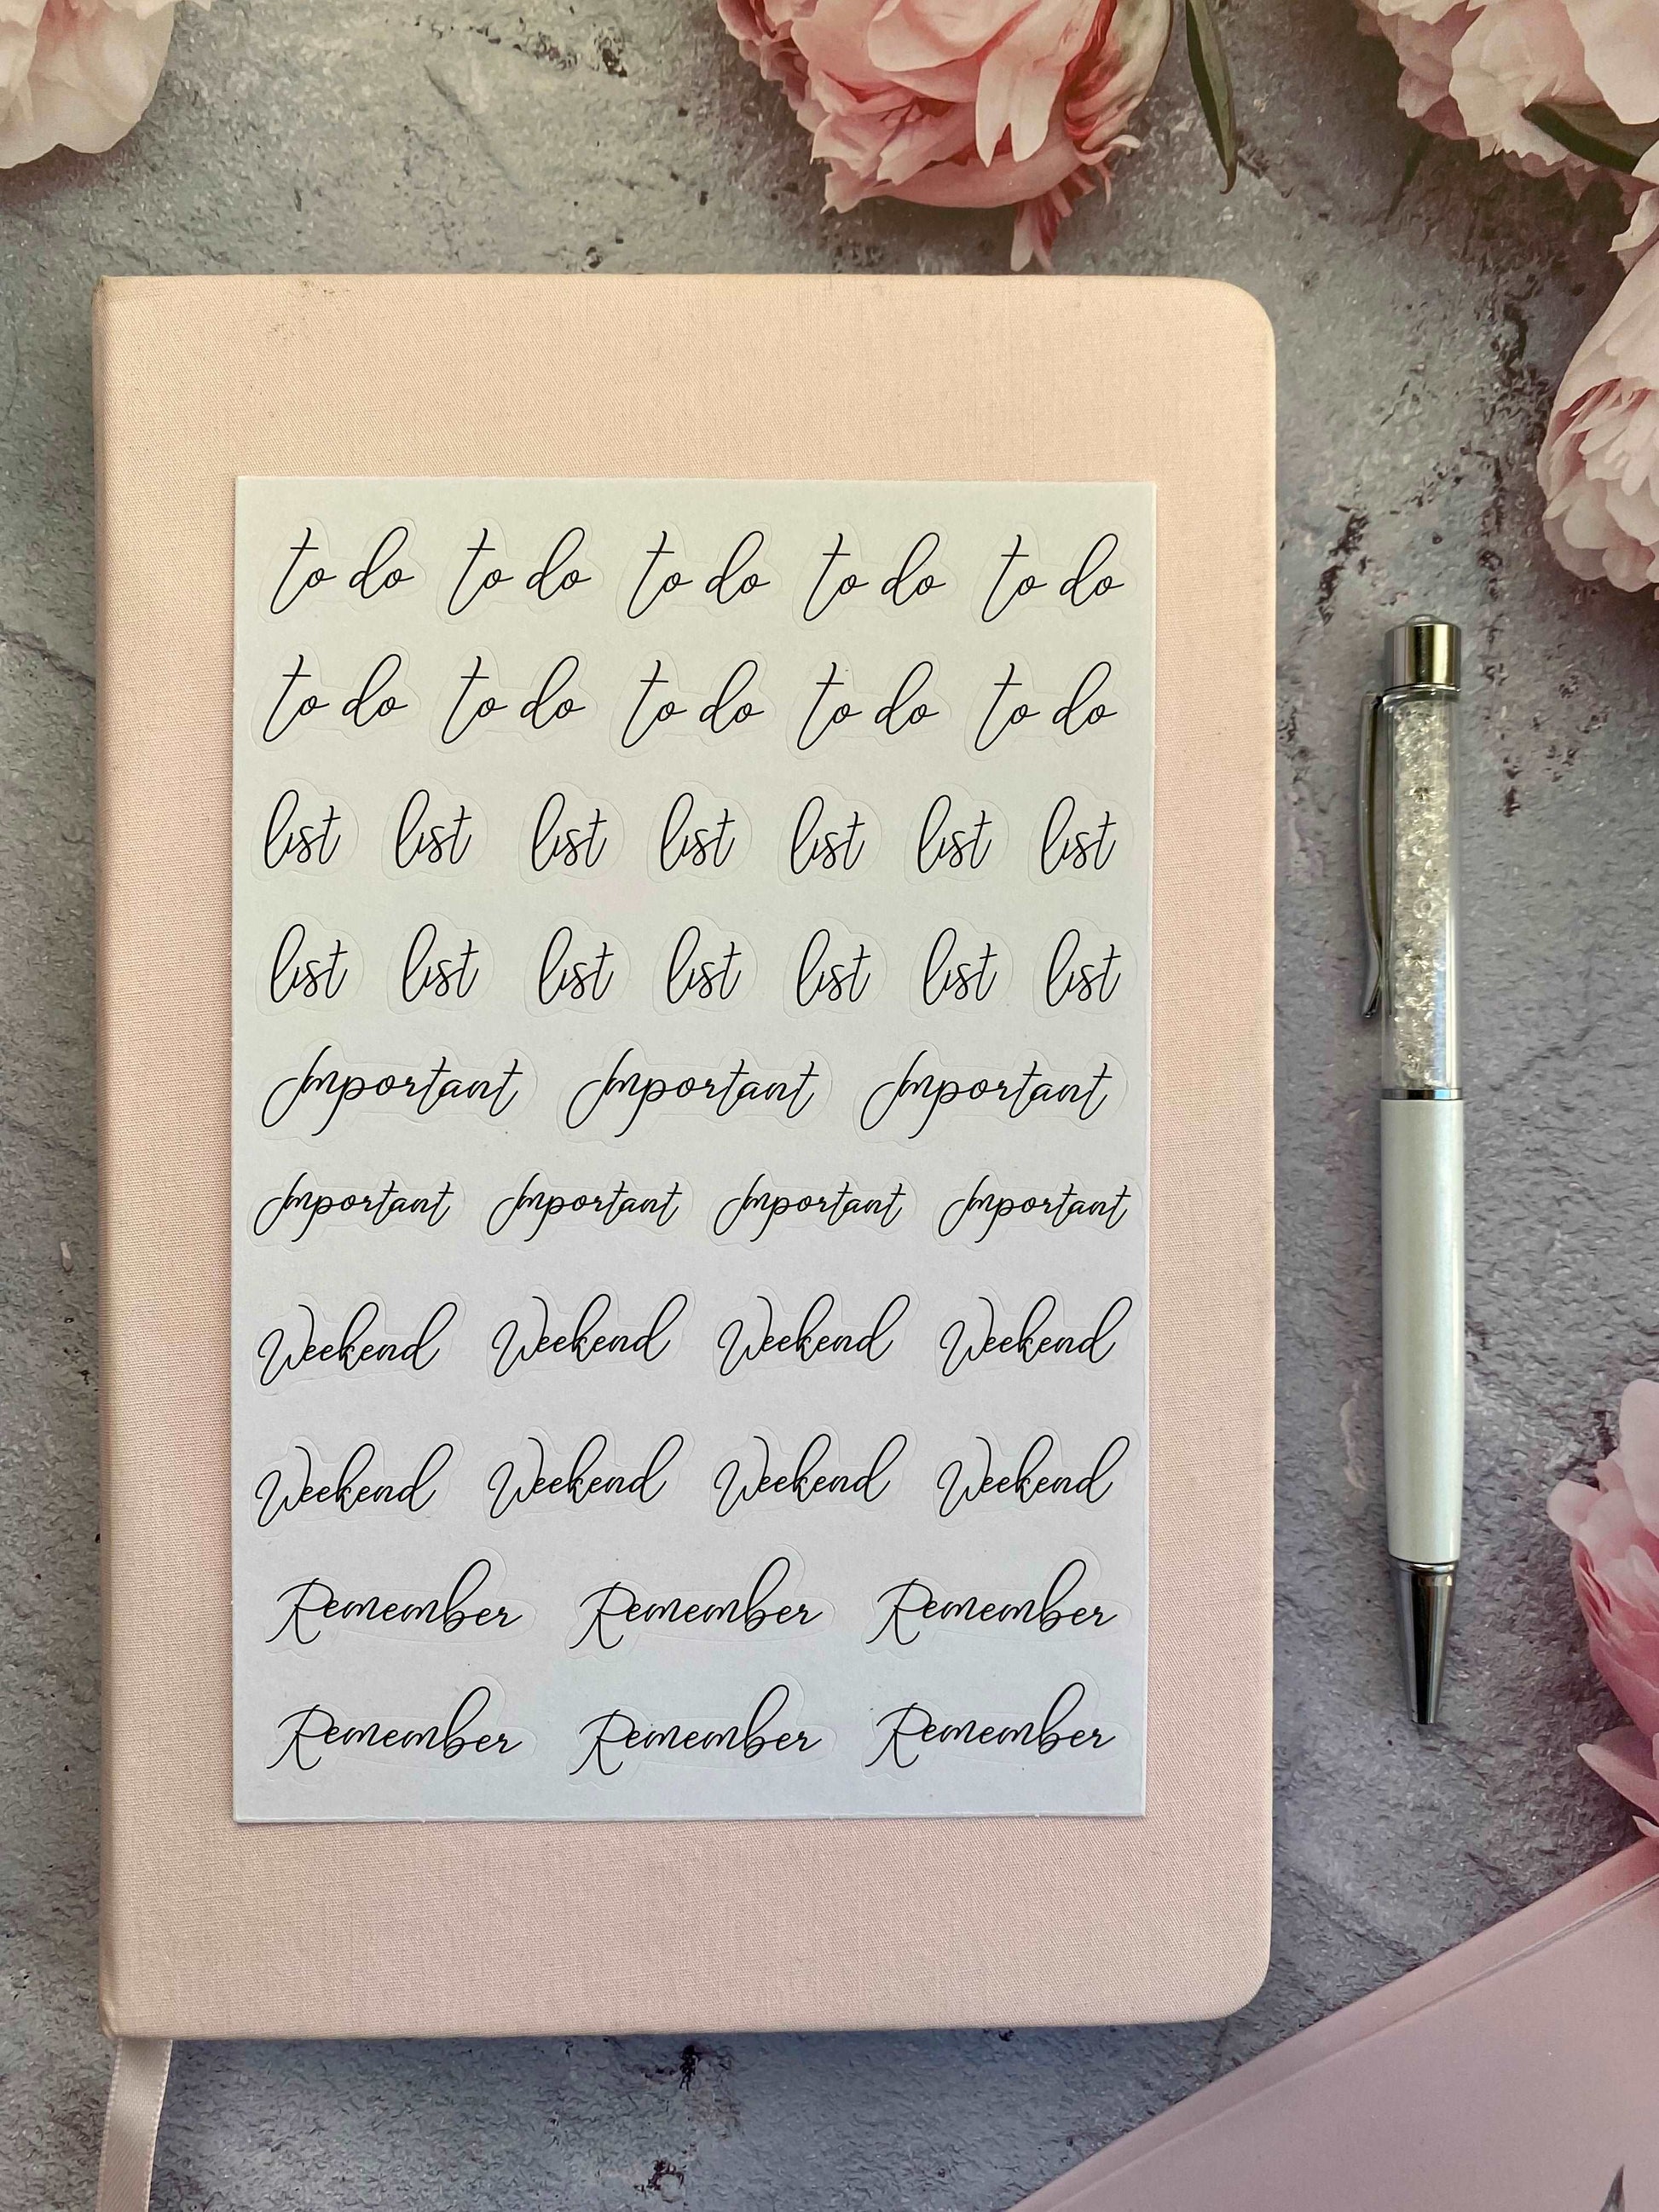 to do to do to do to do to do
to do to do to do to do to do
list list list list list list list
list list list list list list list
Important Important Important
Important Important Important Important
Weekend Weekend Weekend Weekend
Weekend Weekend Weekend Weekend
Remember Remember Remember
Remember Remember Remember